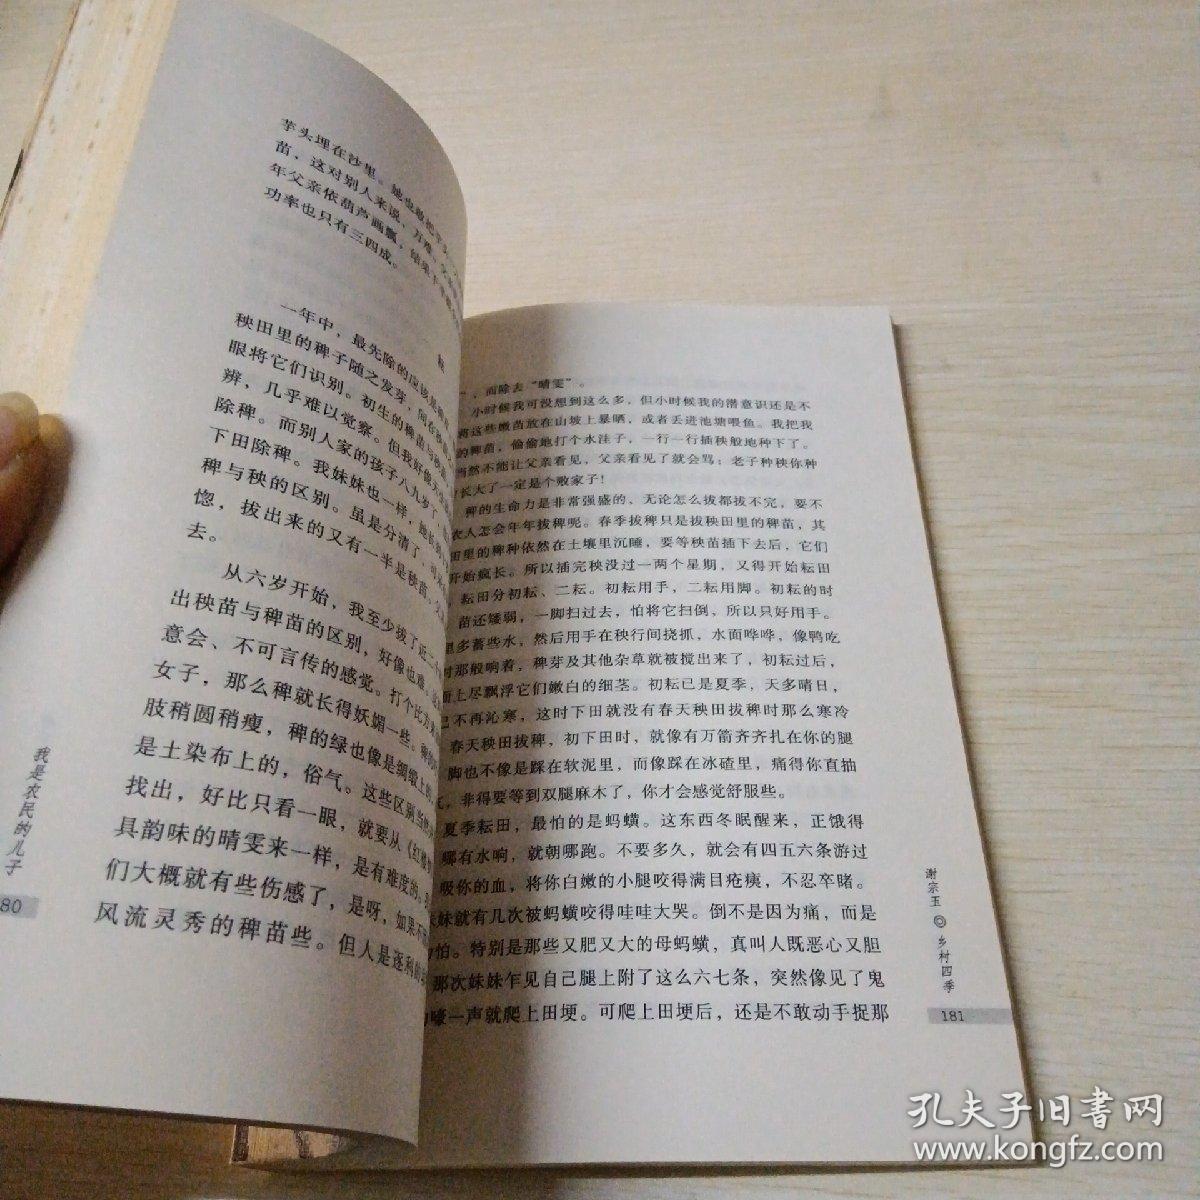 芋头埋在沙里。她也敢把芋头
苗，这对别人来说，万难
年父亲依葫芦画瓢，结果
功率也只有三四成。
一年中，最先除的应该是
秧田里的稗子随之发芽，间在秧
眼将它们识别。初生的稗苗与秧
辨，几乎难以觉察。但我好像天
除稗。而别人家的孩子八九岁了
下田除稗。我妹妹也一样，她
稗与秧的区别。虽是分清了，可
惚，拔出来的又有一半是秧苗。父
去。
从六岁开始，我至少拔了近二十
出秧苗与稗苗的区别，好像也难。
意会、不可言传的感觉。打个比方
女子，那么稗就长得妖媚一些。稗
肢稍圆稍瘦，稗的绿也像是绸缎上的，
是土染布上的，俗气。这些区别当
找出，好比只看一眼，就要从《红楼
具韵味的晴雯来一样，是有难度的。
们大概就有些伤感了，是呀，如果不
风流灵秀的稗苗些。但人是逐利的
我是农民的儿子
80
”，而除去“晴雯”。
小时候我可没想到这么多，但小时候我的潜意识还是不
将这些嫩苗放在山坡上暴晒，或者丢进池塘喂鱼。我把我
的稗苗，偷偷地打个水洼子，一行一行插秧般地种下了。
当然不能让父亲看见，父亲看见了就会骂：老子种秧你种
长大了一定是个败家子！
稗的生命力是非常强盛的，无论怎么拔都拔不完，要不
农人怎会年年拔稗呢。春季拔稗只是拔秧田里的稗苗，其
田里的稗种依然在土壤里沉睡，要等秧苗插下去后，它们
开始疯长。所以插完秧没过一两个星期，又得开始耘田
，耘田分初耘、二耘。初耘用手，二耘用脚。初耘的时
苗还矮弱，一脚扫过去，怕将它扫倒，所以只好用手。
里多蓄些水，然后用手在秧行间挠抓，水面哗哗，像鸭吃
时那般响着，稗芽及其他杂草就被搅出来了，初耘过后，
面上尽飘浮它们嫩白的细茎。初耘已是夏季，天多晴日，
已不再沁寒，这时下田就没有春天秧田拔稗时那么寒冷
春天秧田拔稗，初下田时，就像有万箭齐齐扎在你的腿
脚也不像是踩在软泥里，而像踩在冰碴里，痛得你直抽
气，非得要等到双腿麻木了，你才会感觉舒服些。
夏季耘田，最怕的是蚂蟥。这东西冬眠醒来，正饿得
哪有水响，就朝哪跑。不要多久，就会有四五六条游过
吸你的血，将你白嫩的小腿咬得满目疮痍，不忍卒睹。
妹妹就有几次被蚂蟥咬得哇哇大哭。倒不是因为痛，而是
怕。特别是那些又肥又大的母蚂蟥，真叫人既恶心又胆
那次妹妹乍见自己腿上附了这么六七条，突然像见了鬼
嚎一声就爬上田埂。可爬上田埂后，还是不敢动手捉那
谢宗玉◎乡村四季
181
孔夫子旧书网
www.kongfz.com